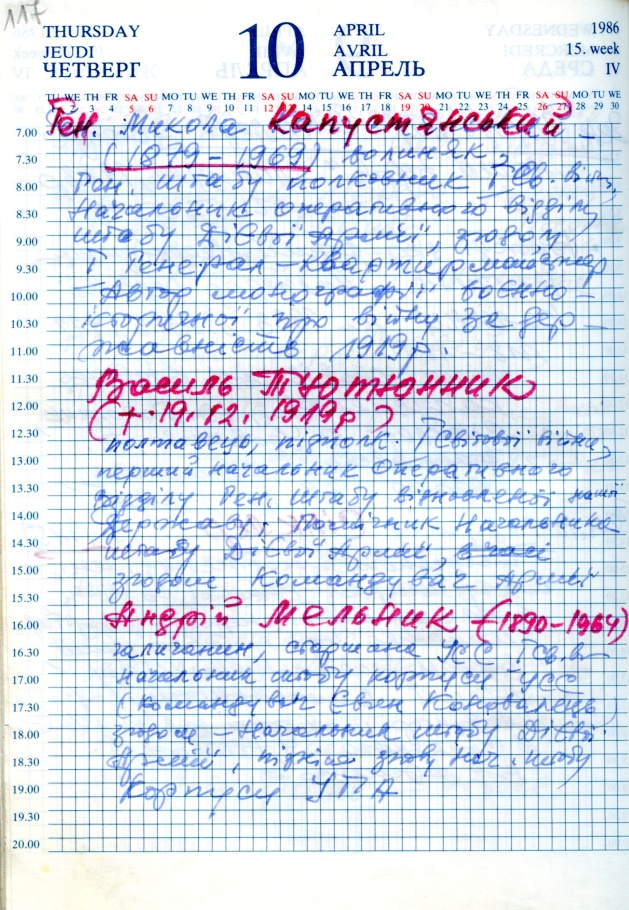 117
THURSDAY
JEUDI
ЧЕТВЕРГ
10
APRIL
AVRIL
АПРЕЛЬ
1986
15. week
IV
TU WE TH FR SA SU MO TU WE TH FR SA SU MO TU WE TH FR SA SU MO TU WE TH FR SA SU MO TU WE
1 2 3 4 5 6 7 8 9 10 11 12 13 14 15 16 17 18 19 20 21 22 23 24 25 26 27 28 29 30
Ген. Микола Капустянський –
7.00
7.30 (1879–1969) волиняк,
8.00 Ген. штабу полковник І Св. війни,
8.30 Начальник оперативного відділу
9.00 штабу Дієвої Армії, згодом
9.30 І Генерал-Квартирмайстер
10.00 Автор монографії воєнно-
10.30 історичної про війну за дер-
11.00 жавність 1919р.
11.30 Василь Тютюнник
12.00 (+ 19.12. 1919р)
12.30 полтавець, підполк. І Світової війни,
13.00 перший начальник Оперативного
13.30 відділу Ген. штабу відновленої нашої
14.00 держави; Помічник Начальника
14.30 штабу Дієвої Армії, в часі
15.00 згодом Командувач Армії
15.30
16.00 Андрій Мельник – (1890–1964)
16.30 галичанин, старшина УСС І св. в-
17.00 начальник штабу корпусу УСС
17.30 (командувач Євген Коновалець)
18.00 згодом – Начальник штабу Дієвої
18.30 Армії, пізніше знову нач. штабу
19.00 Корпусу
19.30
20.00